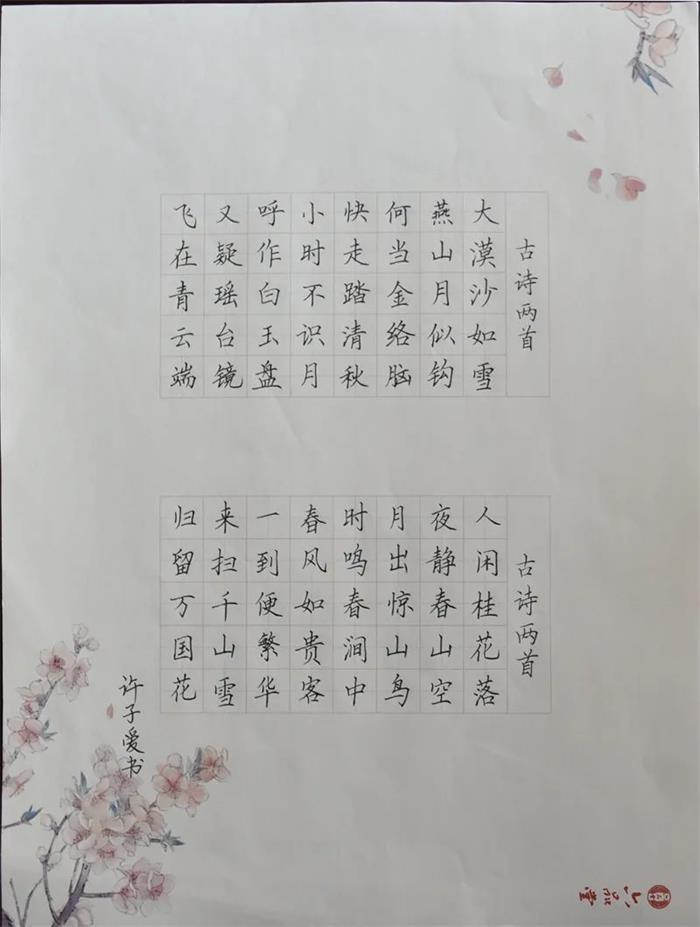 古诗两首
大漠沙如雪
燕山月似钩
何当金络脑
快走踏清秋
小时不识月
呼作白玉盘
又疑瑶台镜
飞在青云端
古诗两首
人闲桂花落
夜静春山空
月出惊山鸟
时鸣春涧中
春风如贵客
一到便繁华
来扫千山雪
归留万国花
许子爱书